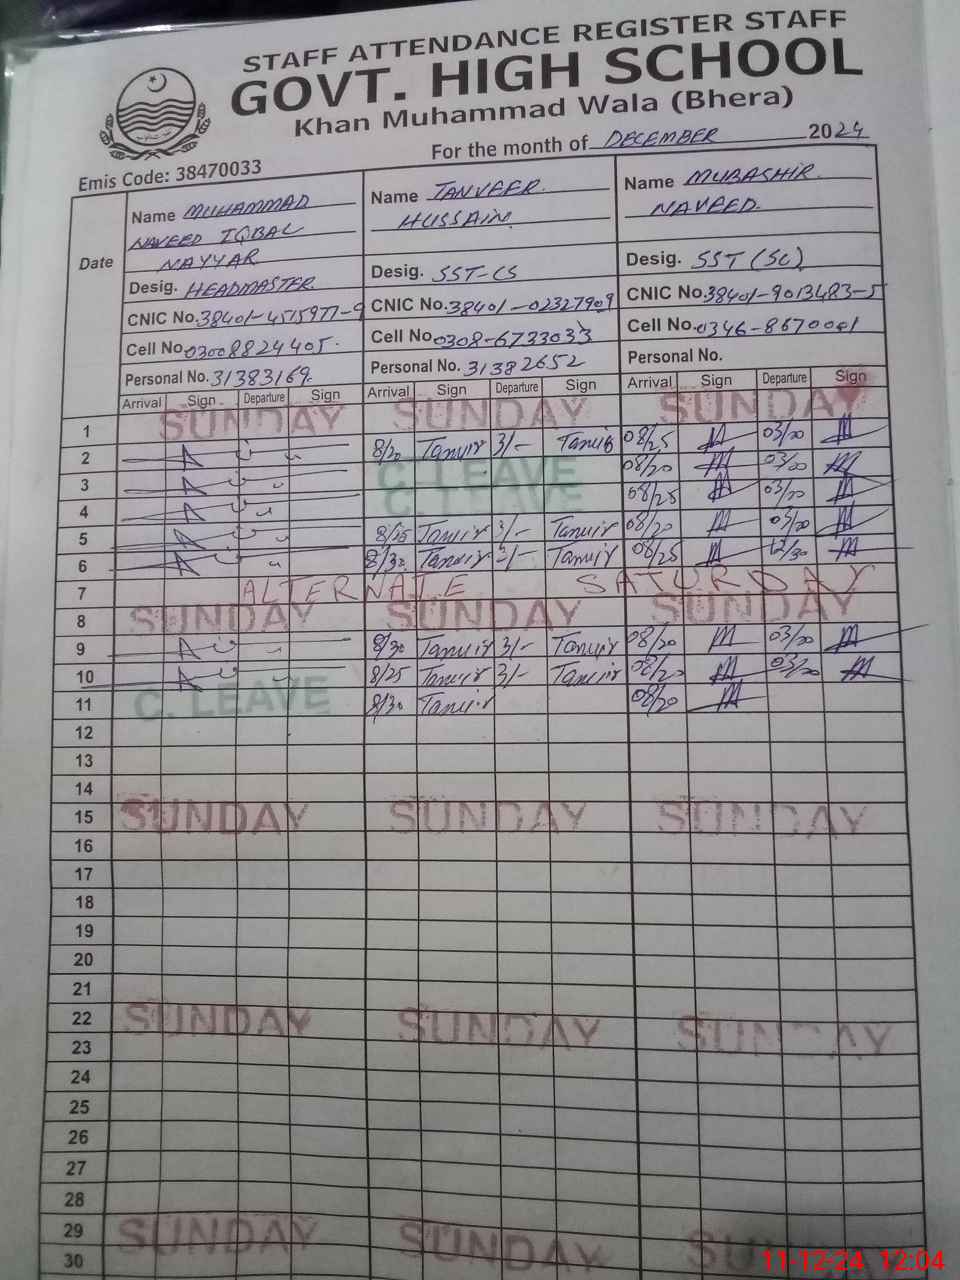 STAFF ATTENDANCE REGISTER STAFF
GOVT. HIGH SCHOOL
Khan Muhammad Wala (Bhera)
Emis Code: 38470033
For the month of DECEMBER 2024
Date
Name MUHAMMAD
NAVEED IQBAL
NAYYAR
Desig. HEADMASTER.
CNIC No. 38401-4515977-9
Cell No. 03008824405.
Personal No. 31383169.
Name TANVEER
HUSSAIN
Desig. SST-CS
CNIC No. 38401-02327909
Cell No. 0308-6733033
Personal No. 31382652
Name MUBASHIR
NAVEED.
Desig. SST (SC)
CNIC No. 38401-9013483-5
Cell No. 0346-8670041
Personal No.
Arrival Sign Departure Sign Arrival Sign Departure Sign Arrival Sign Departure Sign
1 SUNDAY SUNDAY SUNDAY
2 8/20 Tanvir 3/- Tanvir 08/25 03/20
3 C. LEAVE 08/20 03/20
4 C. LEAVE 08/25 03/20
5 8/25 Tanvir 3/- Tanvir 08/20 03/20
6 8/30 Tanvir Tanvir 08/25 12/30
7 ALTERNATE SATURDAY
8 SUNDAY SUNDAY SUNDAY
9 8/30 Tanvir 3/- Tanvir 08/20 03/20
10 8/25 Tanvir 3/- Tanvir 08/20 03/20
11 C. LEAVE 8/30 Tanvir 08/20
12
13
14
15 SUNDAY SUNDAY SUNDAY
16
17
18
19
20
21
22 SUNDAY SUNDAY SUNDAY
23
24
25
26
27
28
29 SUNDAY SUNDAY
30
11-12-24 12:04